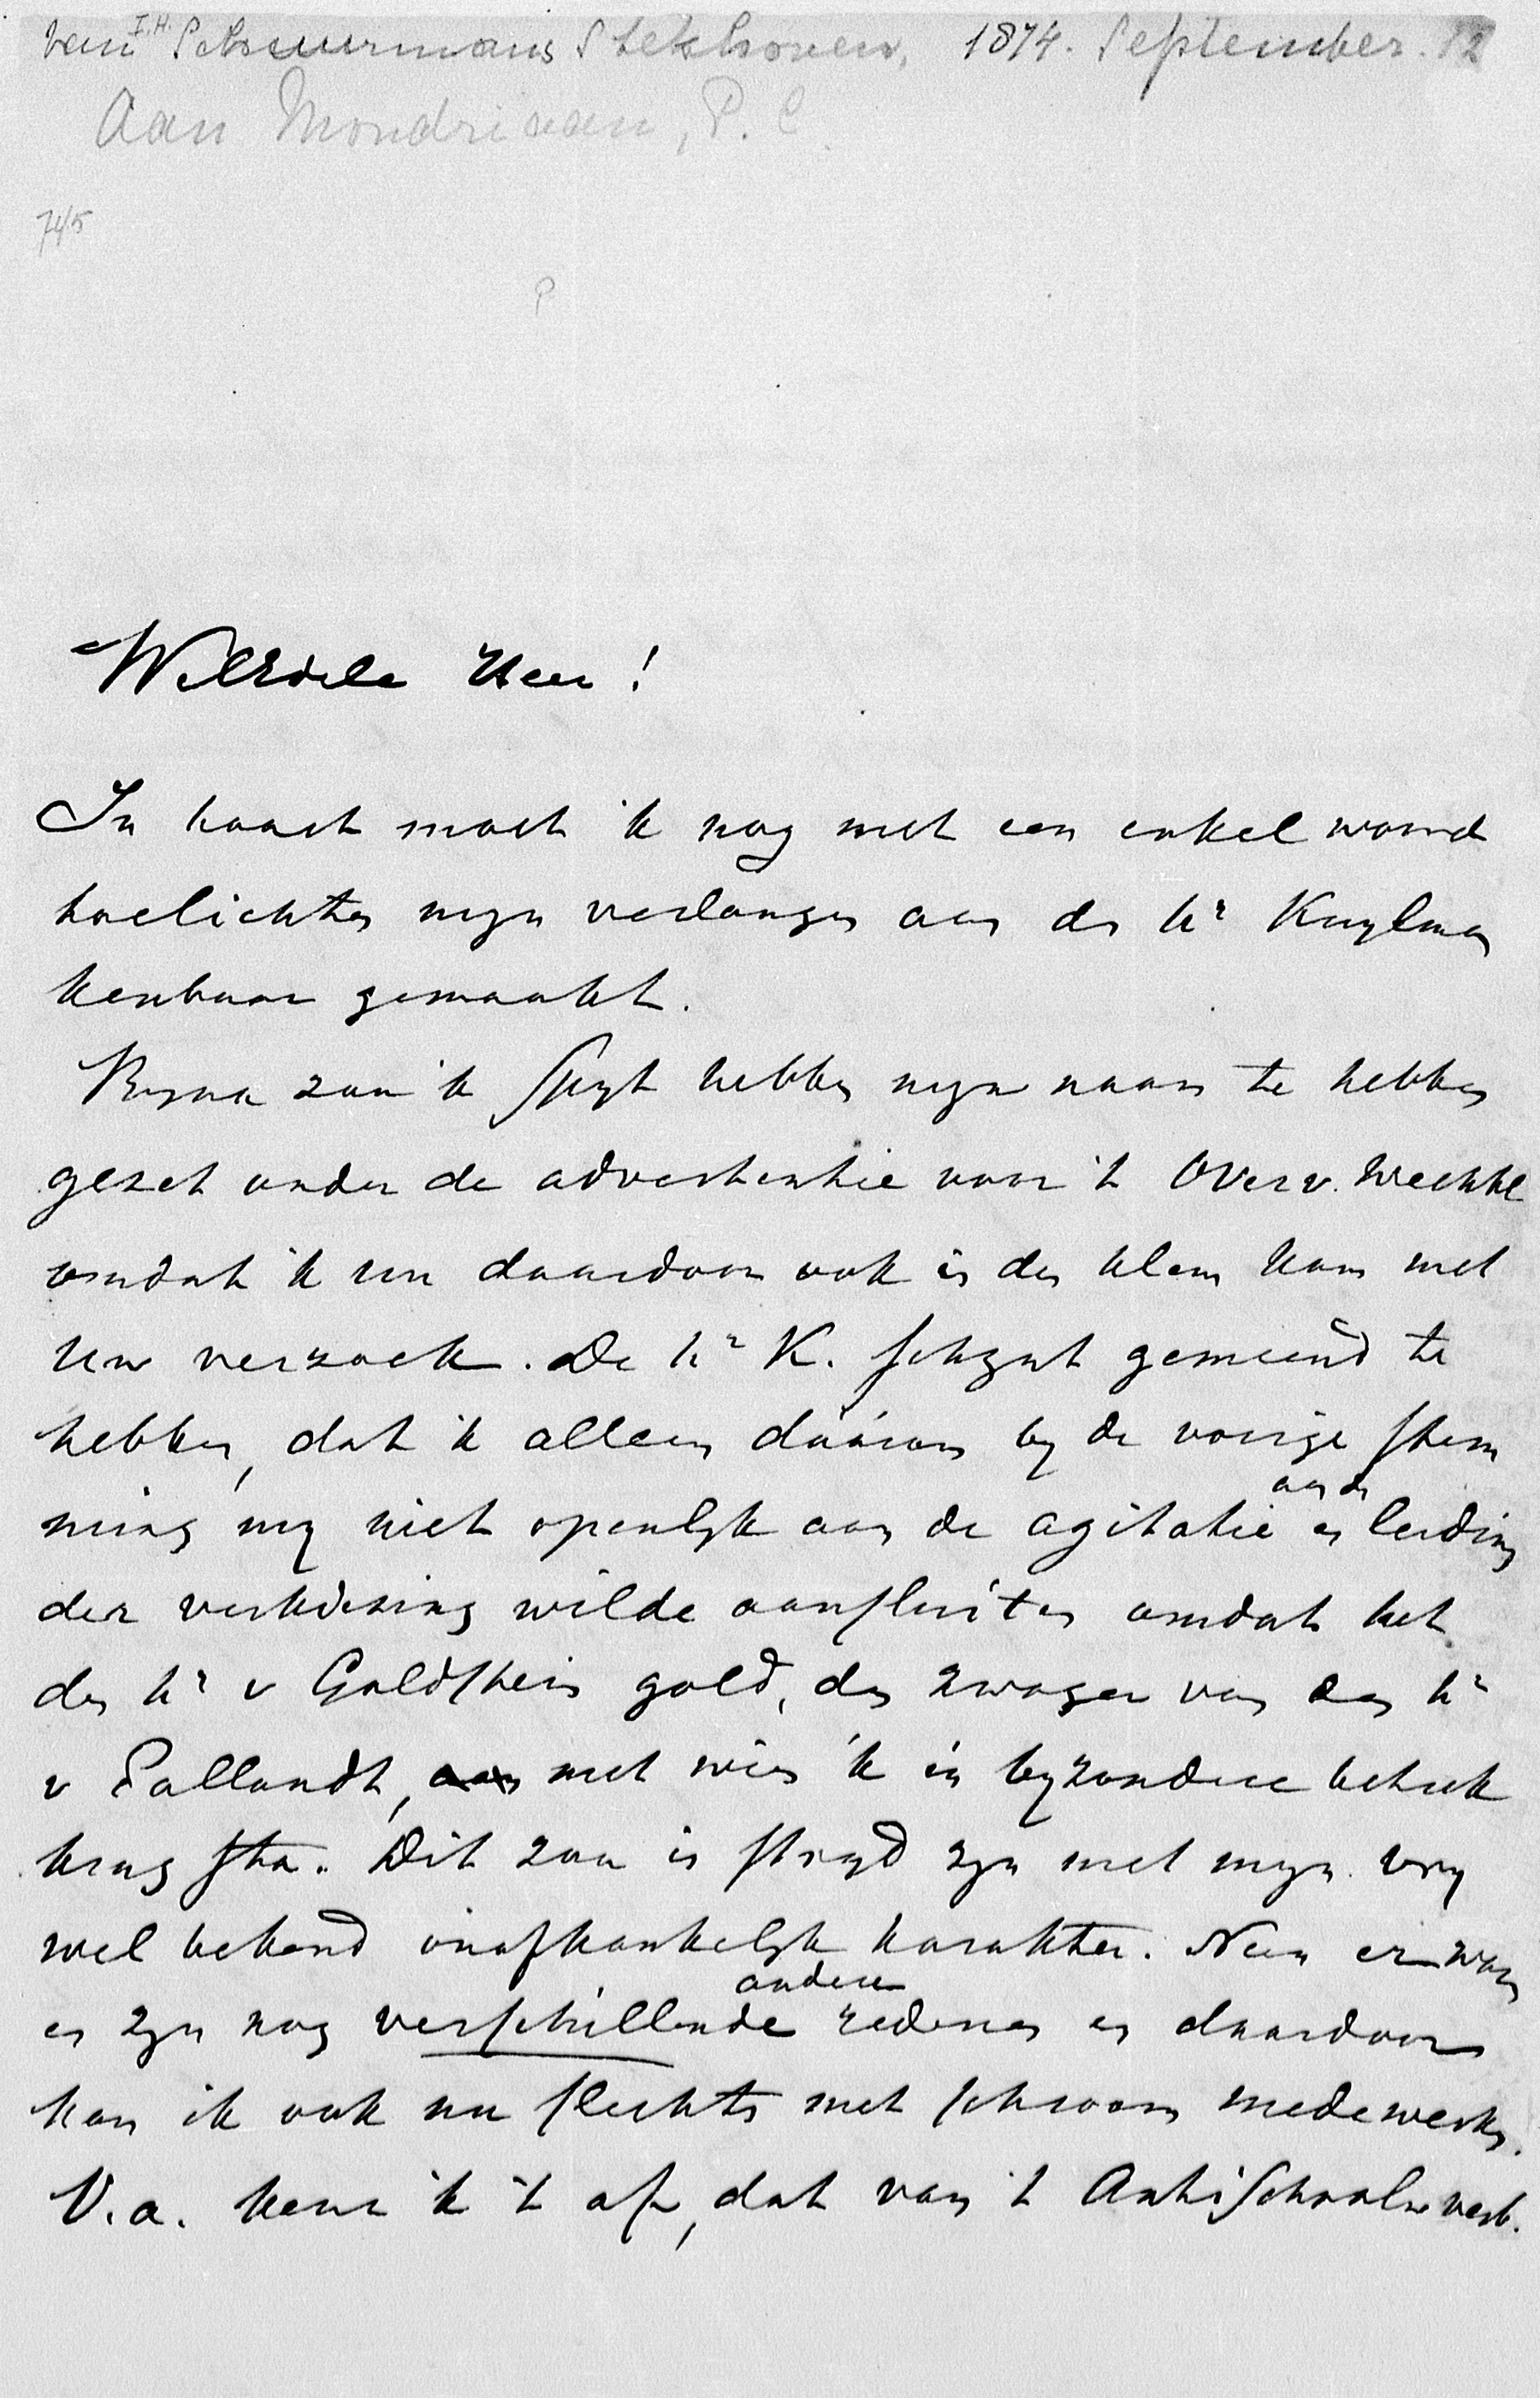 van I.H. Schuurmans Stekhoven, 1874. September. 12
Aan Mondriaan, P. C.
74/5
P
WelEdele Heer!
In haast moet ik nog met een enkel woord
toelichten mijn verlangen aan den hr Kuylman
kenbaar gemaakt.
Byna zou ik spyt hebben myn naam te hebben
gezet onder de advertentie voor 't Overv. Wechtel
omdat ik nu daardoor ook in den klem kom met
Uw verzoek. De hr K. schynt gemeend te
hebben, dat ik alleen dáárom by de vorige stem
ming my niet openlyk aan de agitatie en aan de leiding
der verkiezing wilde aansluiten omdat het
den hr v Goldstein gold, den zwager van den hr
v Pallandt, met wien ik in byzondere betrek
king sta. Dit zou in stryd zyn met myn vry
wel bekend onafhankelyk karakter. Neen er waren
en zyn nog verschillende andere redenen en daardoor
kan ik ook nu slechts met schroom medewerken.
V.a. keur ik 't af, dat van 't Antischoolw verb.